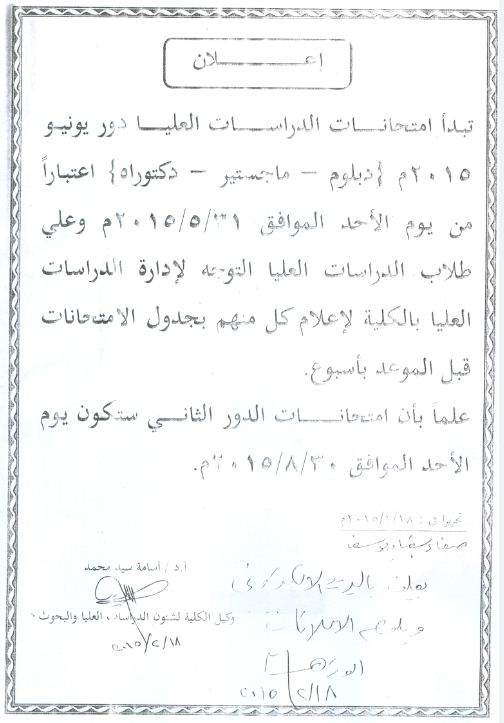 إعـــــلان
تبدأ امتحانات الدراسات العليا دور يونيو
٢٠١٥م {دبلوم – ماجستير – دكتوراه} اعتباراً
من يوم الأحد الموافق ٢٠١٥/٥/٣١م وعلي
طلاب الدراسات العليا التوجه لإدارة الدراسات
العليا بالكلية لإعلام كل منهم بجدول الامتحانات
قبل الموعد بأسبوع.
علماً بأن امتحانات الدور الثاني ستكون يوم
الأحد الموافق ٢٠١٥/٨/٣٠م.
تحريرا فى : ٢٠١٥/٢/١٨م
أ.د / أسامة سيد محمد
وكيل الكلية لشئون الدراسات العليا والبحوث
٢٠١٥/٢/١٨
يعلن
الإعلانات
٢٠١٥/٢/١٨